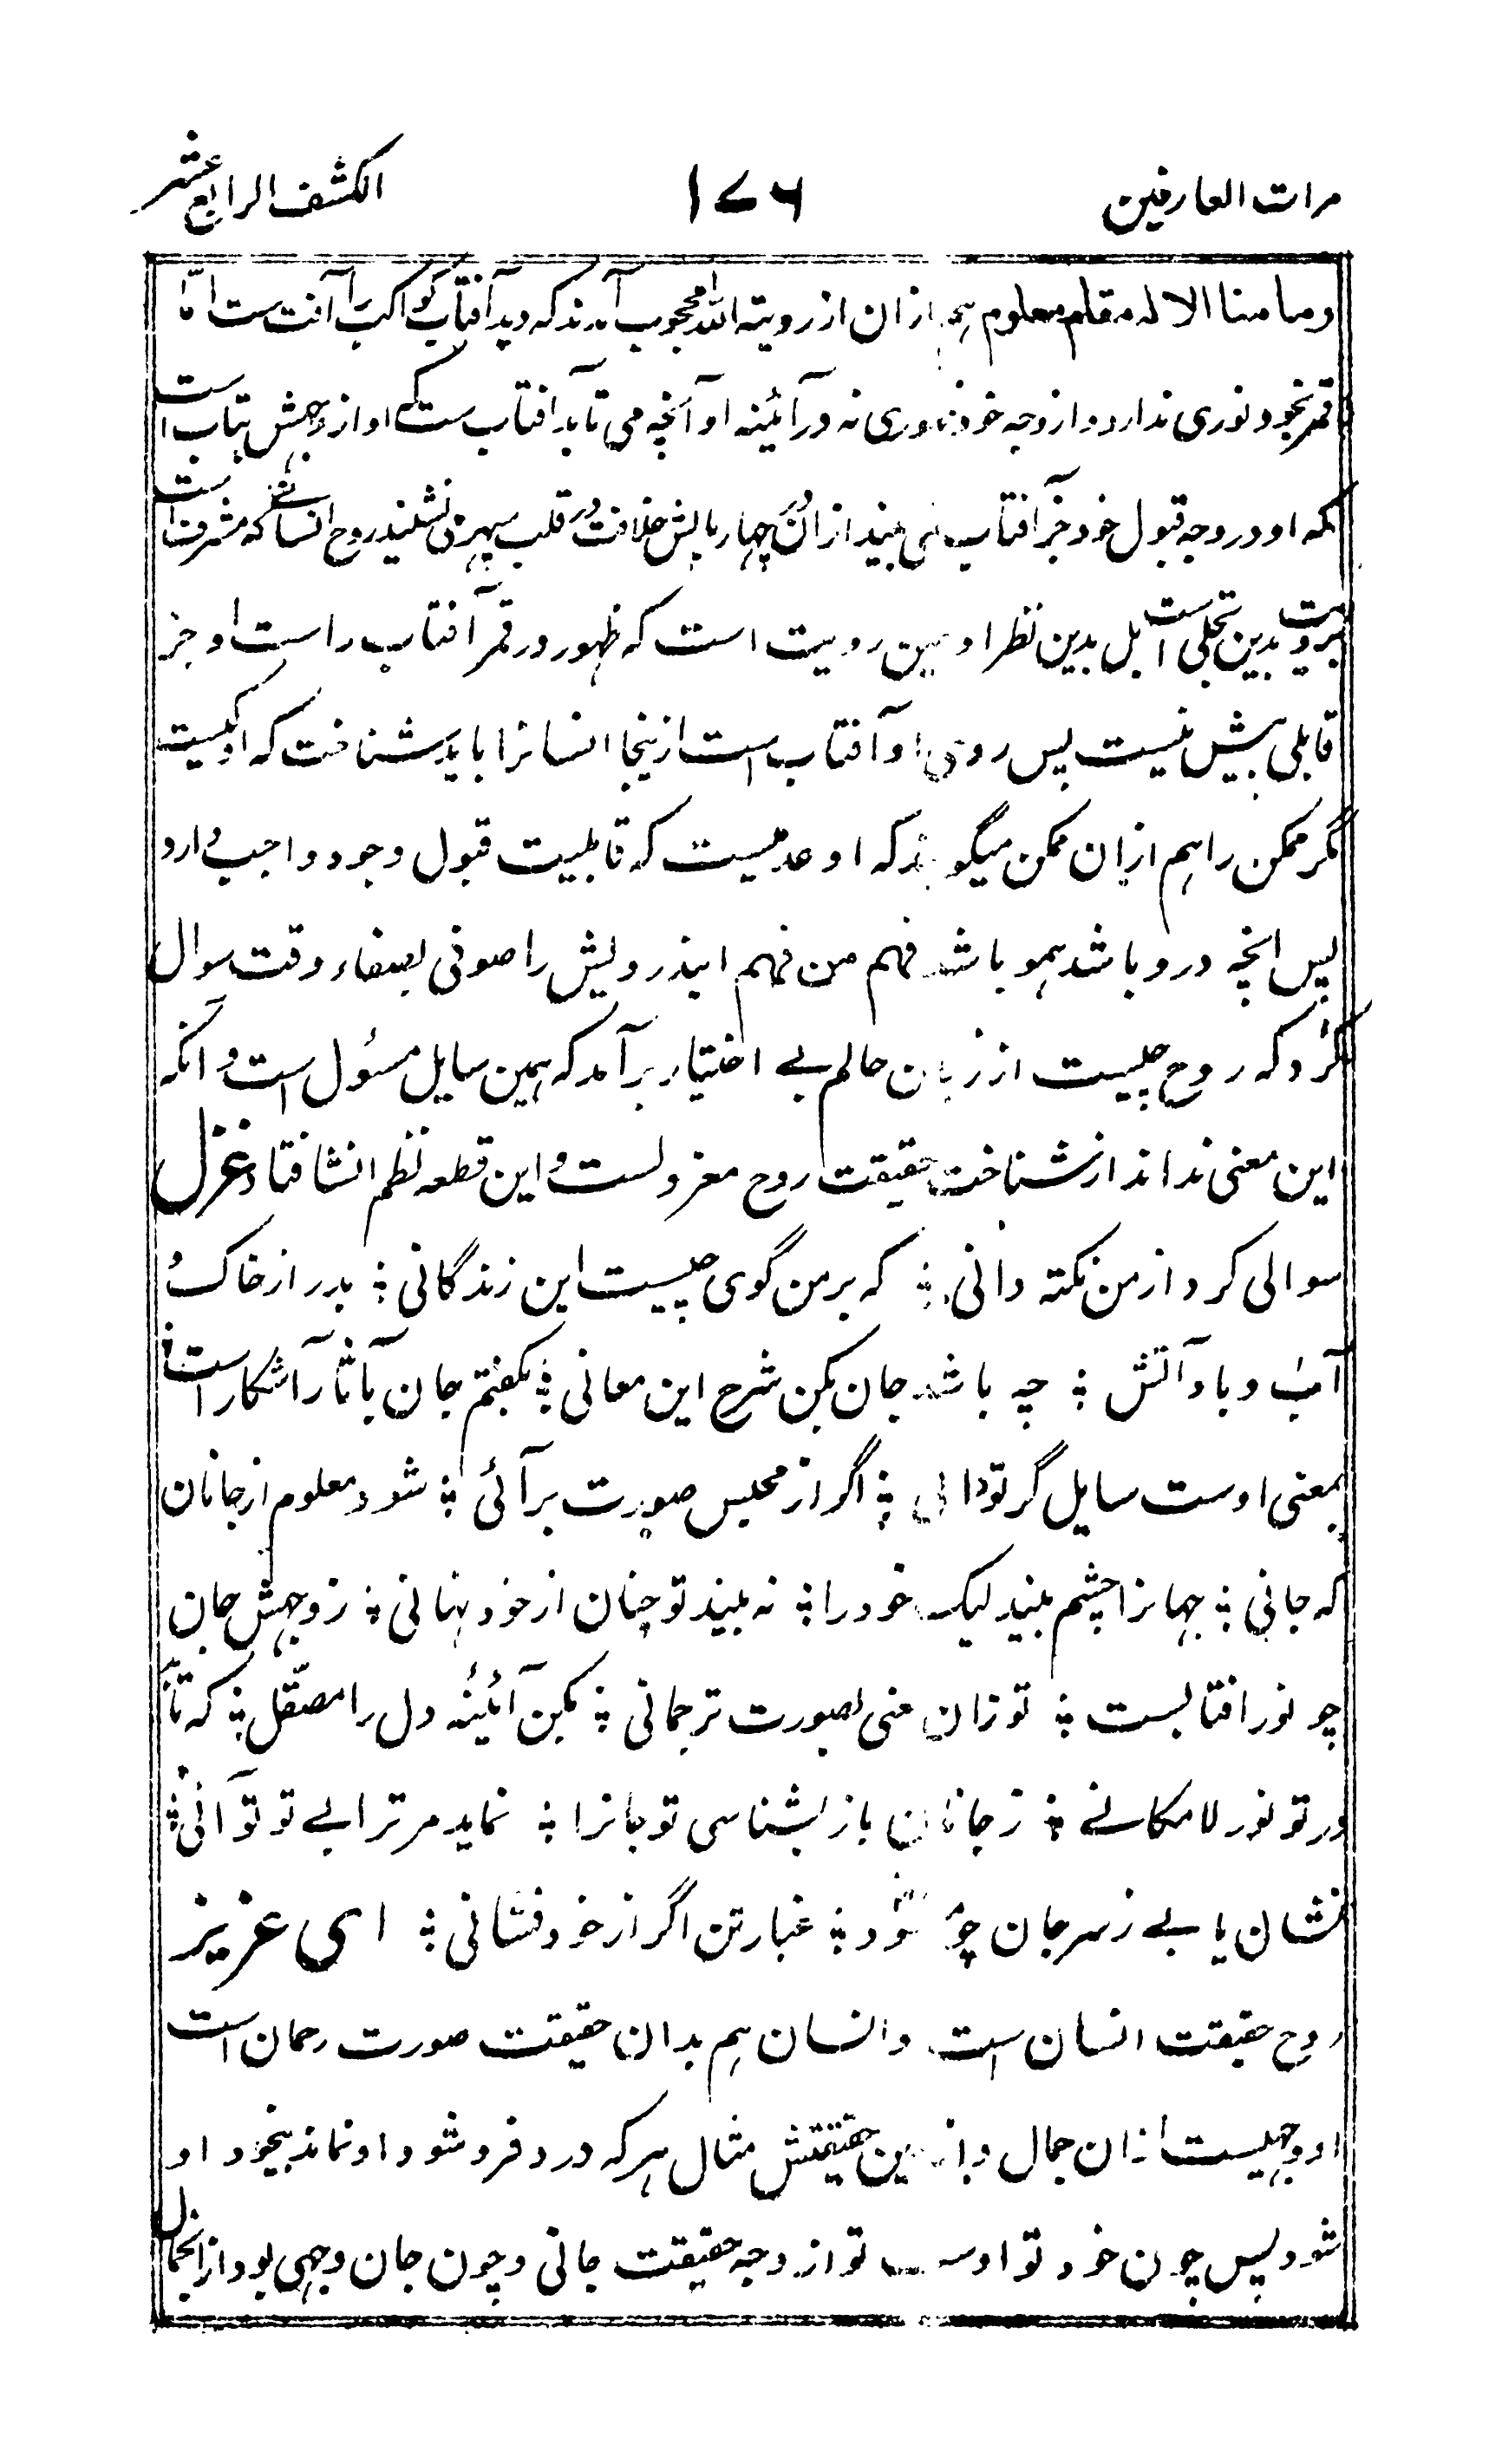 مرات العارفین ١٧٦ الکشف الرابع عشر
وما منا الا له مقام معلوم هم ازان از رویته الله محجوب آمدند که دید آفتاب کواکب را آفت ست اما
قمر بخود نوری ندارد و از وجه خود ظهوری نه در آئینه او آنچه می تابد آفتاب ست که او از وجهش بتاب است
که او در وجه قبول خود جز آفتاب نمی بیند ازان در چهار بالش خلافت در قلب سپهر می نشیند روح انسانی که مشرف است
برویت بدین تجلی است بل بدین نظر او عین رویت است که ظهور در قمر آفتاب راست او جز
قابلی بیش نیست پس روی او آفتاب است ازینجا انسانرا باید شناخت که او کیست
مگر ممکن را هم ازان ممکن میگویند که او عدمیست که قابلیت قبول وجود واجب دارد
پس انچه درو باشد همو باشد فهم من فهم ایندرویش را صوفی بصفاء وقت سوال
کرد که روح چیست از زبان حالم بے اختیار برآمد که همین سایل مسئول است و انکه
این معنی نداند از شناخت حقیقت روح معزولست و این قطعه نظم انشا فتاد غزل
سوالی کرد از من نکته دانی ؛ که بر من گوی چیست این زندگانی ؛ بدر از خاک و
آب و باد و آتش ؛ چه باشد جان بکن شرح این معانی ؛ بگفتم جان بآثار آشکار است ؛
بمعنی اوست سایل گر تو دانی ؛ اگر از محبس صورت برآئی ؛ شود معلوم از جانان
که جانی ؛ جهانرا چشم بیند لیک خود را ؛ نه بیند تو چنان از خود نهانی ؛ ز وجهش جان
چو نور افتابست ؛ تو زان معنی بصورت ترجمانی ؛ بکن آئینهٔ دل را مصقل ؛ که تابد
در تو نور لامکانے ؛ ز جانان باز بشناسی تو جانرا ؛ نماید مر ترا بے تو توآنی ؛
نشان یابے ز سر جان چو شود ؛ غبار تن اگر از خود فشانی ؛ ای عزیز
روح حقیقت انسان است و انسان هم بدان حقیقت صورت رحمان است
او وجهیست ازان جمال و این حقیقتش مثال هر که درد فرو شود او نماند بیخود او
شود پس چون خود تو اوست تو از وجه حقیقت جانی و چون جان وجهی بود از انجمال